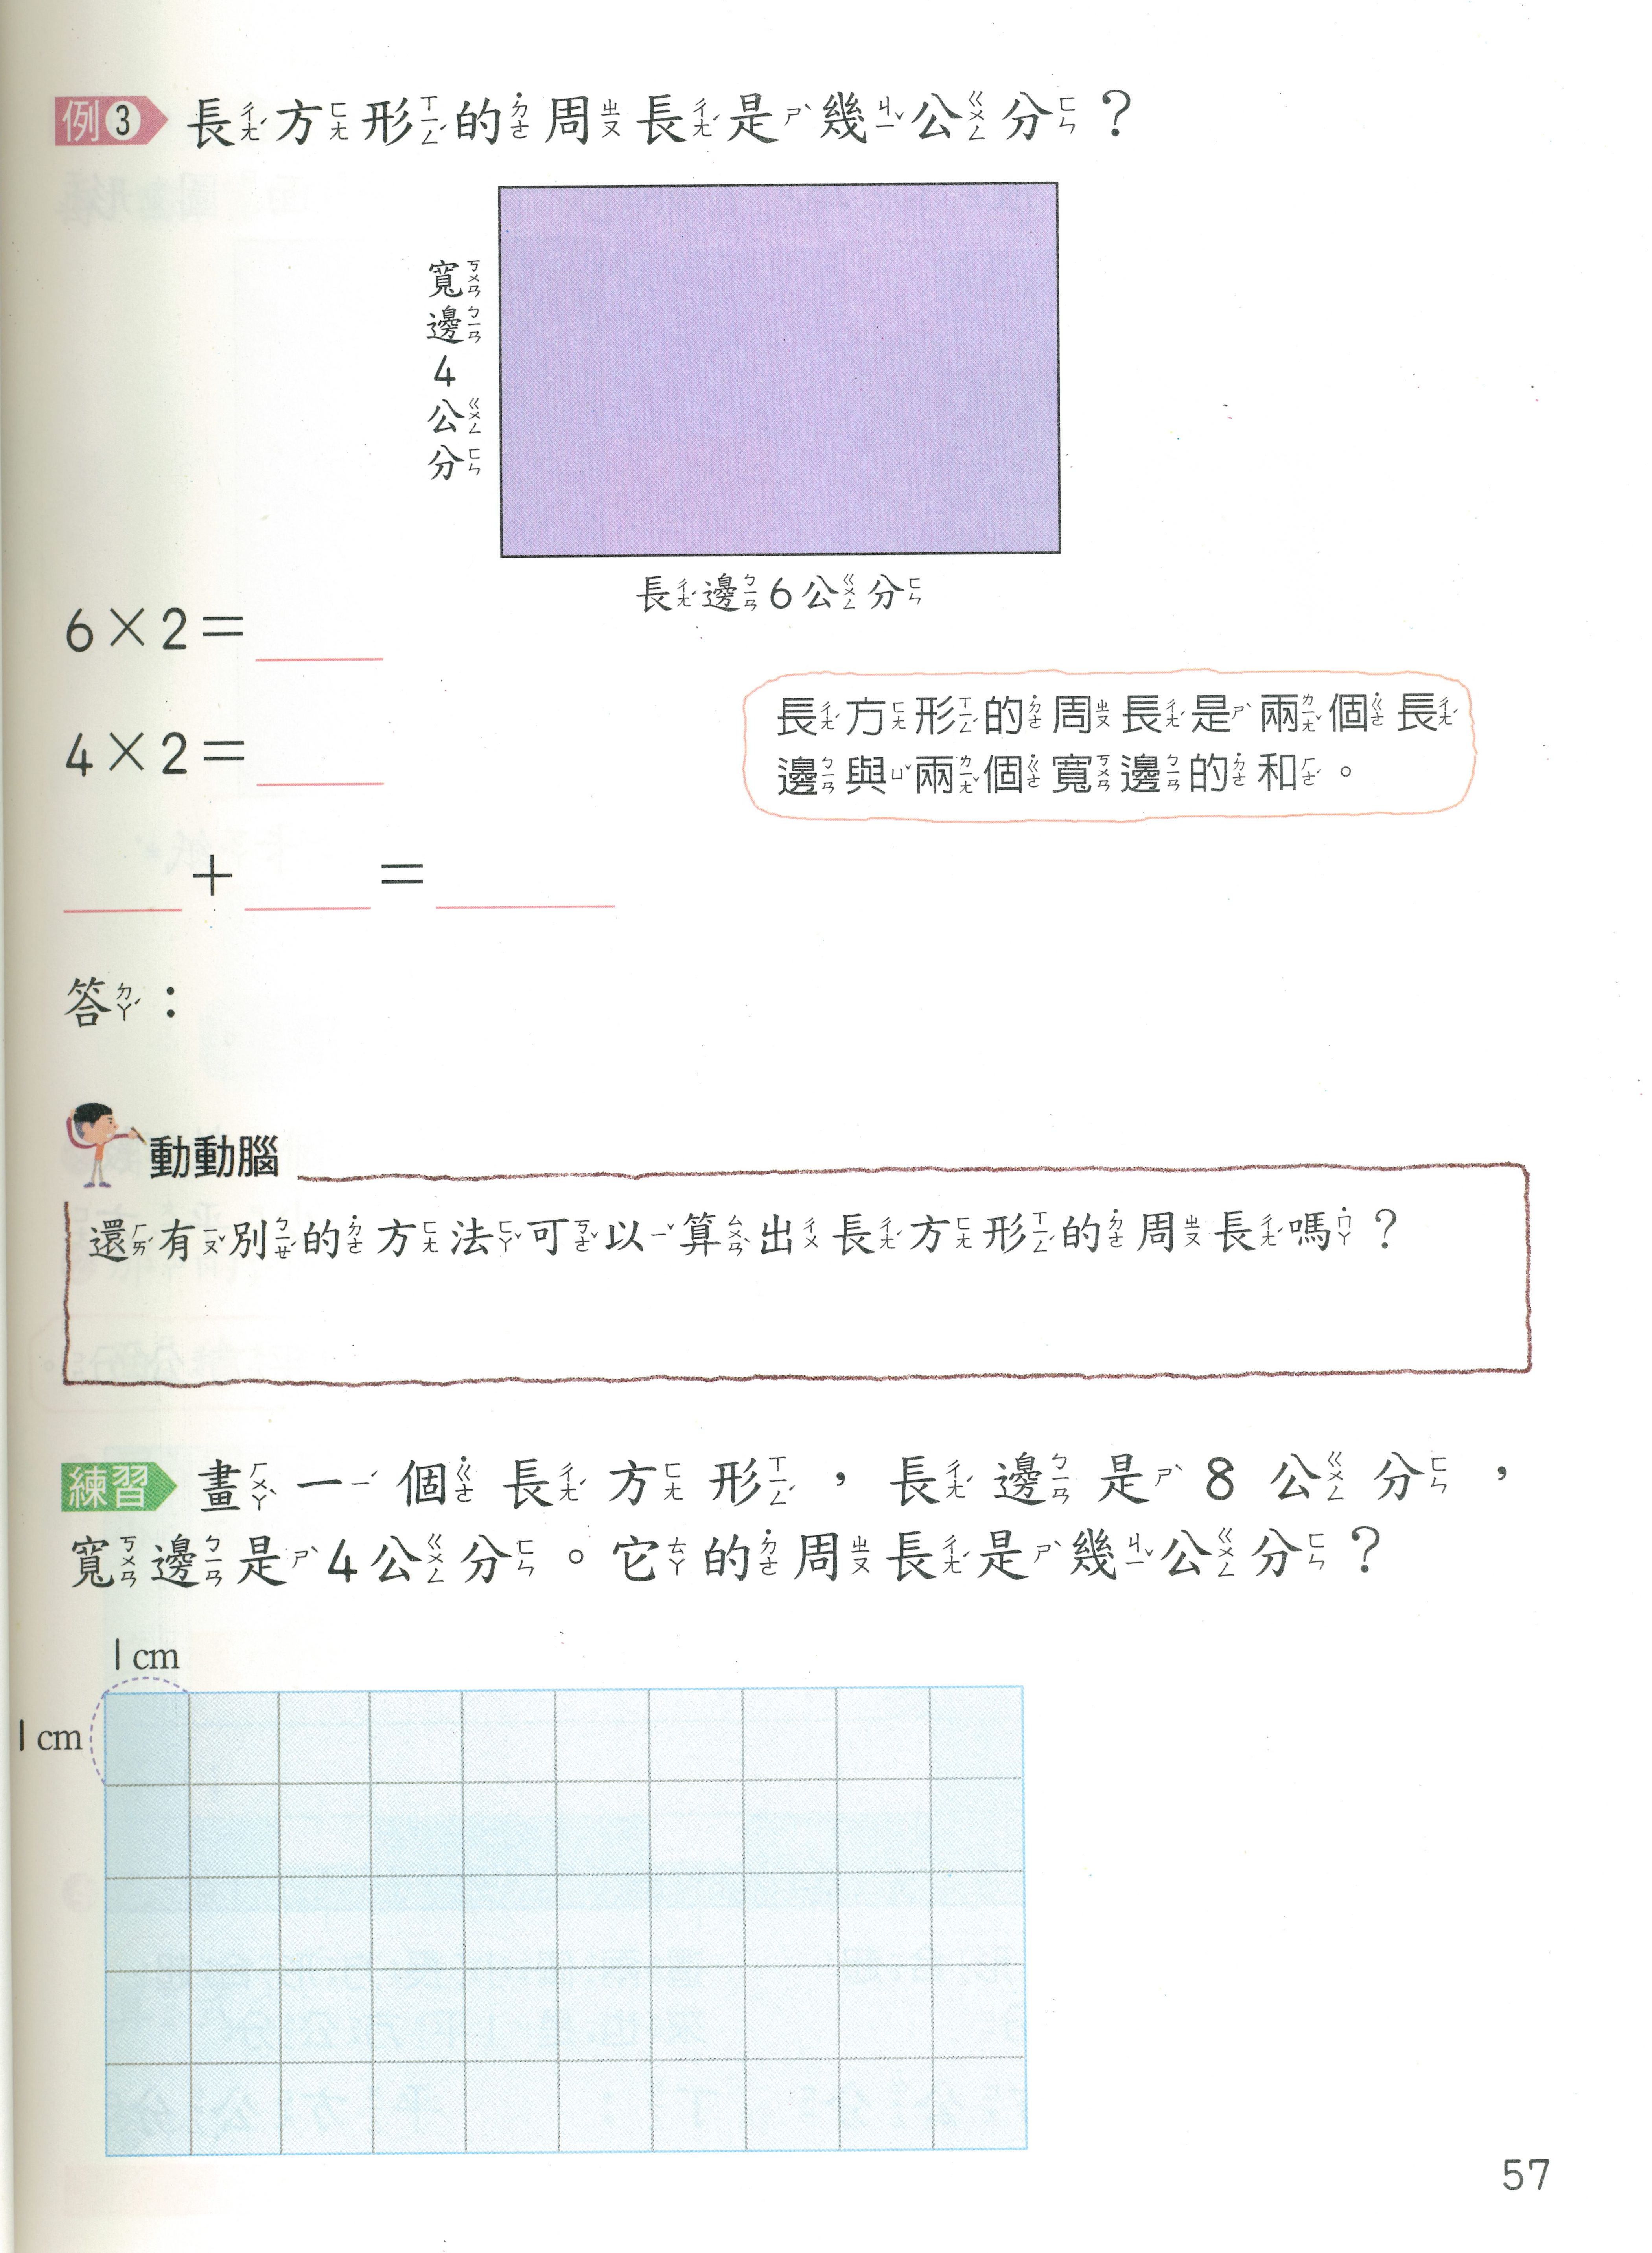 例3 長方形的周長是幾公分？
寬邊4公分
長邊6公分
6×2=
4×2=
長方形的周長是兩個長
邊與兩個寬邊的和。
+ =
答：
動動腦
還有別的方法可以算出長方形的周長嗎？
練習 畫一個長方形，長邊是8公分，
寬邊是4公分。它的周長是幾公分？
1 cm
1 cm
57